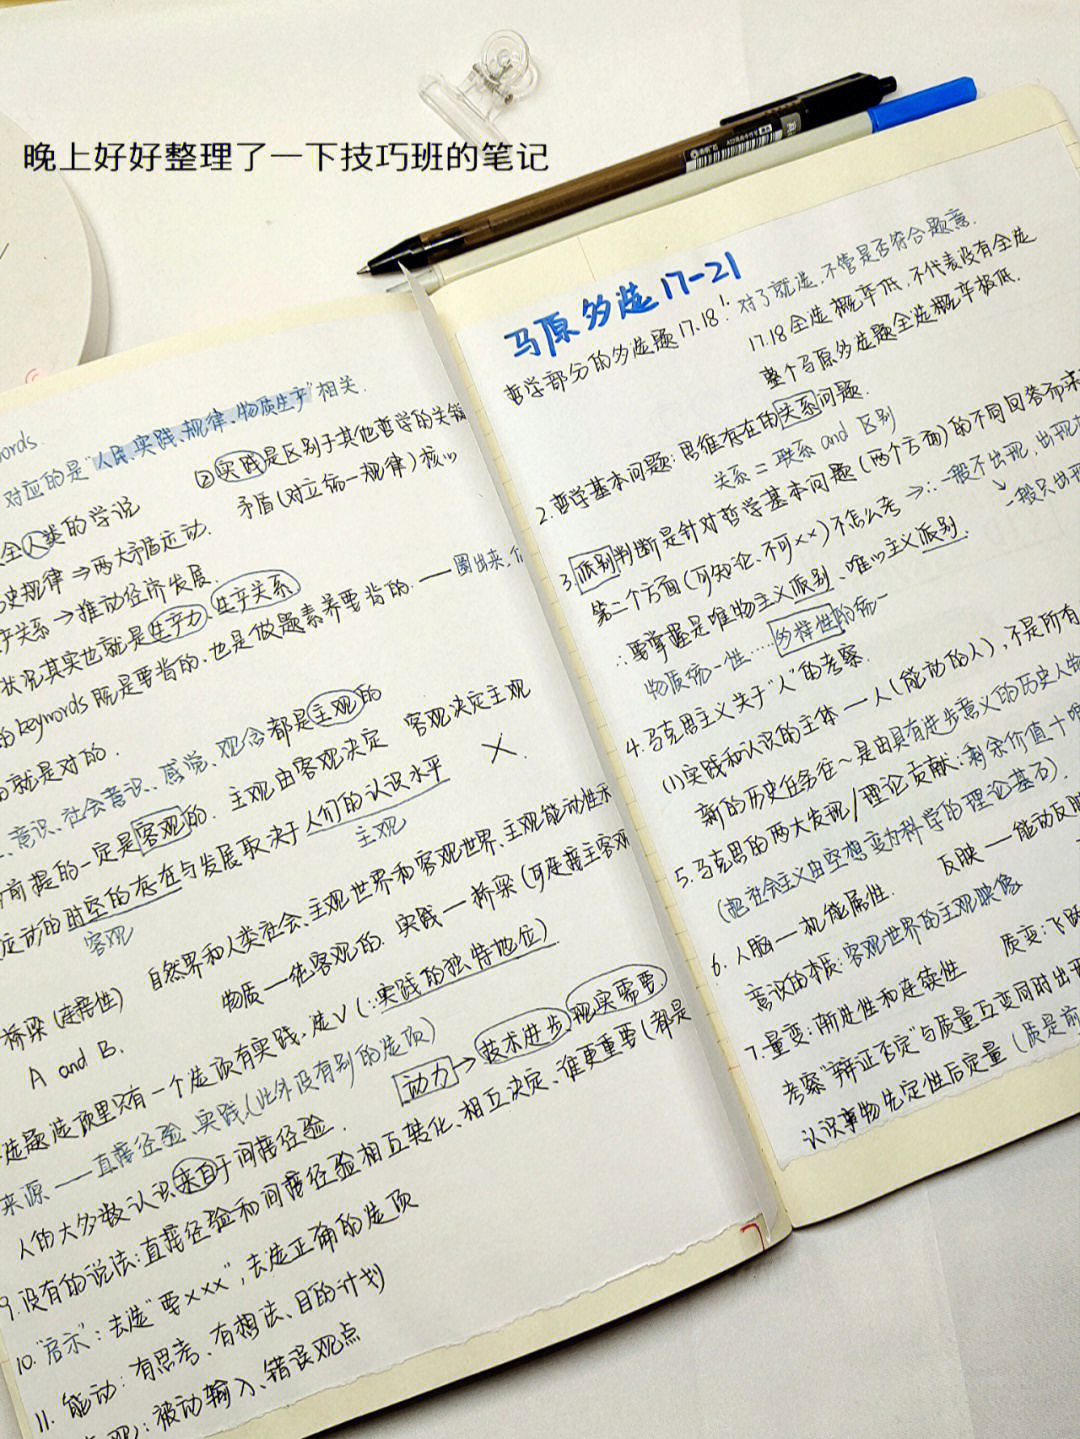 晚上好好整理了一下技巧班的笔记
words.
对应的是“人民、实践、规律、物质生产”相关.
②实践是区别于其他哲学的关键
全人类的学说
矛盾(对立统一规律)核心
史规律⇒两大矛盾运动.
产关系→推动经济发展.
状况其实也就是生产力、生产关系
的keywords既是要背的、也是做题素养要背的.——圈出来,
就是对的.
、意识、社会意识、感觉、观念都是主观的
前提的一定是客观的. 主观由客观决定 客观决定主观
运动的时空的存在与发展取决于人们的认识水平 ×
客观 主观
自然界和人类社会、主观世界和客观世界、主观能动性
桥梁(连接性) 物质—绝客观的. 实践—桥梁(可连接主客观
A and B.
选题选项里只有一个选项有实践,选√(∵实践的独特地位)
来源——直接经验、实践人(此外没有别的选项)
动力→技术进步 现实需要
人的大多数认识来自于间接经验.
9.没有的说法:直接经验和间接经验相互转化、相互决定、谁更重要(都是
10.“启示”:去选“要×××”,去选正确的选项
11. 能动:有思考、有想法、目的计划
观:被动输入、错误观点
马原多选17-21
哲学部分的多选题17.18!对了就选,不管是否符合题意.
17.18全选概率低,不代表没有全选
整个马原多选题全选概率极低.
2.哲学基本问题:思维存在的关系问题.
关系=联系 and 区别
3.派别判断是针对哲学基本问题(两个方面)的不同回答而来
第二个方面(可知论、不可××)不怎么考⇒∴一般不出现,出现
一般只出
∴要掌握是唯物主义派别、唯心主义派别.
物质统一性……多样性的统一
4.马克思主义关于“人”的考察.
(1)实践和认识的主体—人(能动的人),不是所有
新的历史任务往~是由具有进步意义的历史人物
5.马克思的两大发现/理论贡献:剩余价值+唯
(把社会主义由空想变为科学的理论基石).
6.人脑—机能属性. 反映—能动反映
意识的本质:客观世界的主观映像
7.量变:渐进性和连续性 质变:飞跃
考察“辩证否定”与质量互变同时出
认识事物先定性后定量(质是前